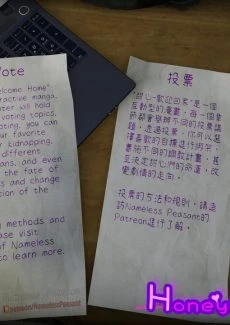 Vote
"Welcome Home"
ractive manga.
ter will hold
voting topics.
ting, you can
ur favorite
kidnapping,
different
ans, and even
the fate of
s and change
tion of the
g methods and
ase visit
of Nameless
to learn more.
/NamelessPeasant
投票
"甜心-歡迎回家"是一個
互動型的漫畫,每一個章
節都會舉辦不同的投票議
題,透過投票,你可以選
擇喜歡的目標進行綁架、
實施不同的調教計畫,甚
至決定甜心們的命運,改
變劇情的走向。
投票的方法和規則,請造
訪Nameless Peasant的
Patreon進行了解。
Honey